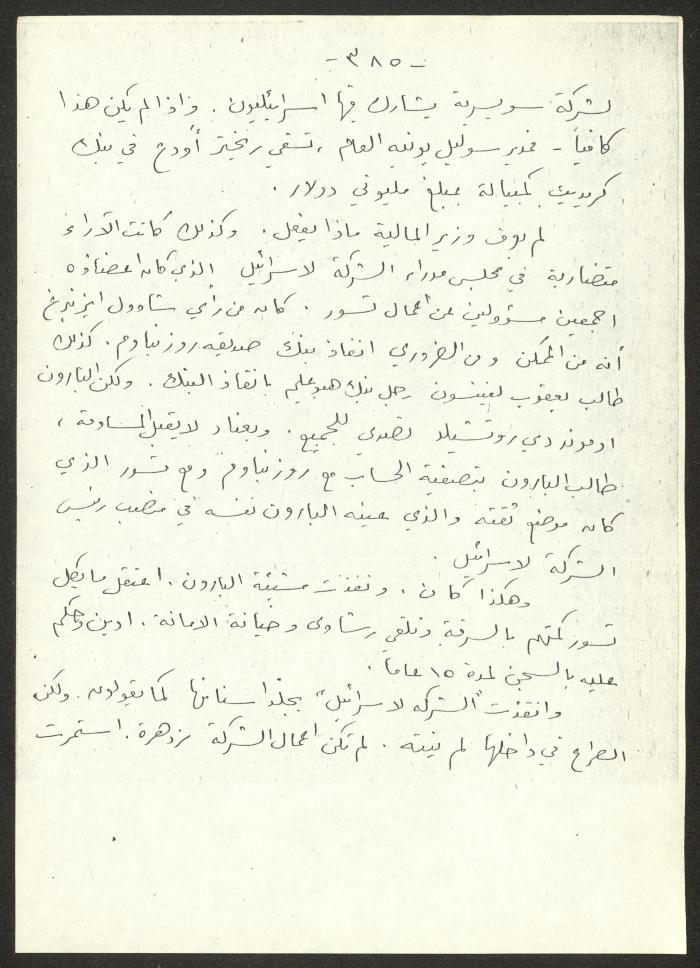 - ٣٨٥ -
لشركة سويسرية يشارك فيها اسرائيليون. واذا لم يكن هذا
كافياً - فمدير سوليل بونيه العام، تسفي ريختر أودع في بنك
كريديت كمبيالة بمبلغ مليوني دولار.
لم يعرف وزير المالية ماذا يفعل. وكذلك كانت الآراء
متضاربة في مجلس مدراء الشركة لاسرائيل الذي كان اعضاؤه
اجمعين مسؤولين عن اعمال تسور. كان من رأي شاؤول ايزنبرغ
أنه من الممكن ومن الضروري انقاذ بنك صديقه روزنباوم. كذلك
طالب يعقوب ليفينسون رجل بنك هبوعليم بانقاذ البنك. ولكن البارون
ادموند دي روتشيلد تصدى للجميع. وبعناد لا يقبل المساومة،
طالب البارون بتصفية الحساب مع روزنباوم ومع تسور الذي
كان موضع ثقته والذي عينه البارون نفسه في منصب رئيس
الشركة لاسرائيل.
وهكذا كان. ونفذت مشيئة البارون. اعتقل مايكل
تسور كمتهم بالسرقة وتلقي رشاوى وخيانة الامانة. ادين وحكم
عليه بالسجن لمدة ١٥ عاماً.
وانقذت "الشركة لاسرائيل" بجلد اسنانها كما يقولون. ولكن
الصراع في داخلها لم ينته. لم تكن اعمال الشركة مزدهرة. استمرت